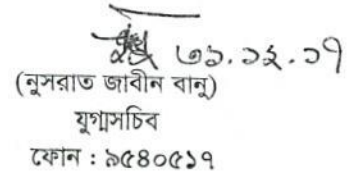 ৩১.১২.১৭
(নুসরাত জাবীন বানু)
যুগ্মসচিব
ফোন : ৯৫৪০৫১৭